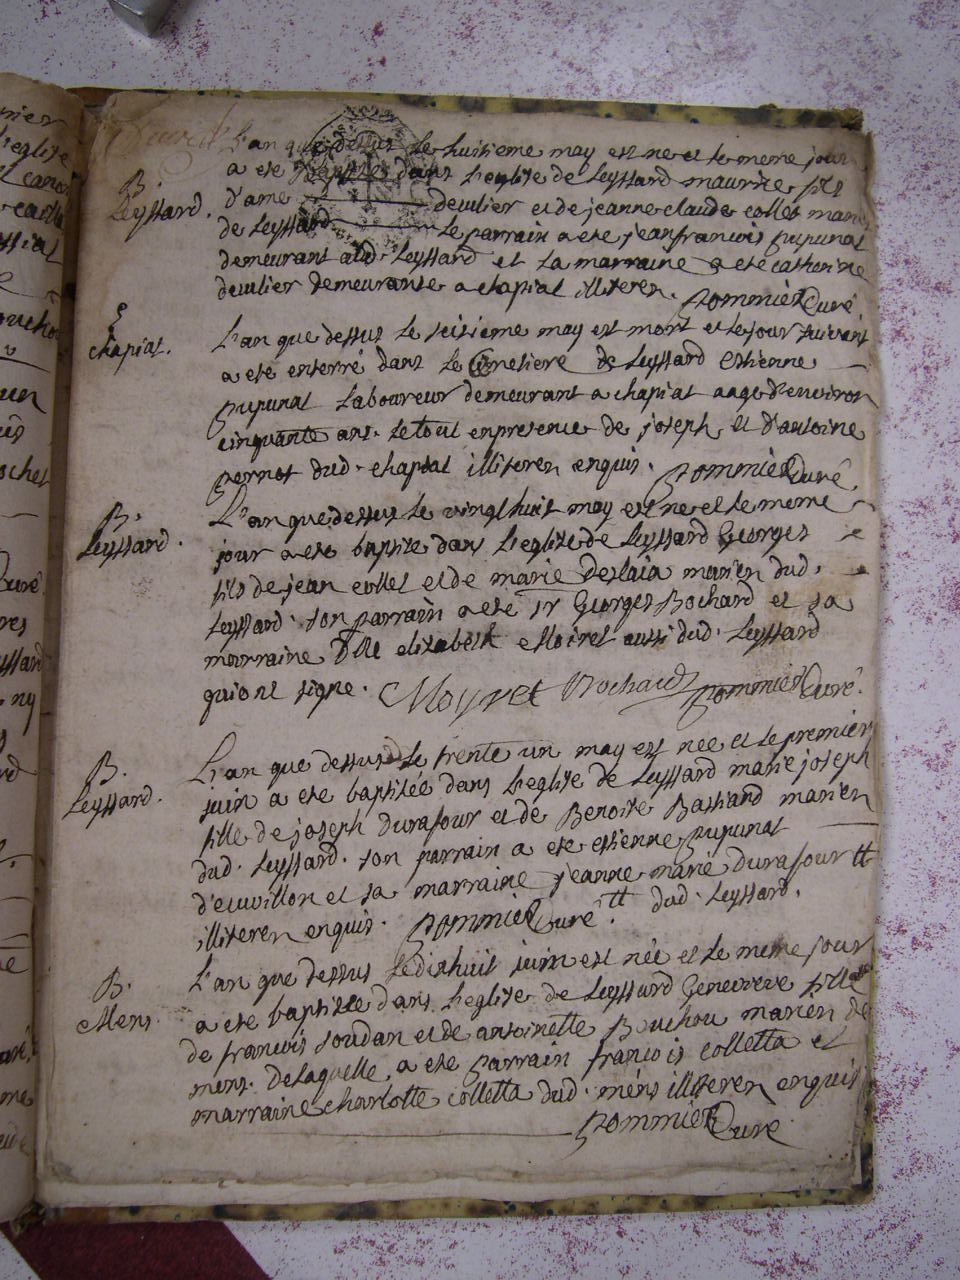 L'an que dessus le huitieme may est ne et le meme jour
B.
Leyssard.
a ete baptise dans l'eglise de Leyssard maurice fils
d'ame deculier et de jeanne claude collet mariés
de Leyssard le parrain a ete jeanfrancois pupunat
demeurant aud. Leyssard et la marraine a ete catherine
deculier demeurante a chapiat illiteren. pommier Curé
S
chapiat.
L'an que dessus le seisieme may est mort et le jour suivant
a eté enterré dans le Cimetiere de Leyssard Estienne
pupunat Laboureur demeurant a chapiat aagé d'environ
cinquante ans. le tout en presence de joseph et d'antoine
pernot dud. chapiat illiteren enquis. pommier Curé.
B.
Leyssard.
L'an que dessus le vingt huit may est ne et le meme
jour a ete baptise dans l'eglise de Leyssard Georges
fils de jean collet et de marie deslaia mariés dud.
Leyssard. son parrain a ete sr Georges Bochard et sa
marraine dlle elisabeth Moiret aussi dud. Leyssard
qui ont signe. Moyret Bochard pommier Curé.
B.
Leyssard.
L'an que dessus le trente un may est née et le premier
juin a ete baptisée dans l'eglise de Leyssard marie joseph
fille de joseph durafour et de Benoite Bastiand mariés
dud. Leyssard. son parrain a ete estienne pupunat
d'ecuvillon et sa marraine jeanne marie durafour tt
illiteren enquis. pommier Curé tt dud. Leyssard.
B.
Mens.
L'an que dessus le dixhuit juin est née et le meme jour
a ete baptisée dans l'eglise de Leyssard Genevieve fille
de francois soudan et de antoinette Bouchou mariés de
mens. de laquelle a ete parrain francois colletta et
marraine charlotte colletta dud. mens illiteren enquis
pommier Curé